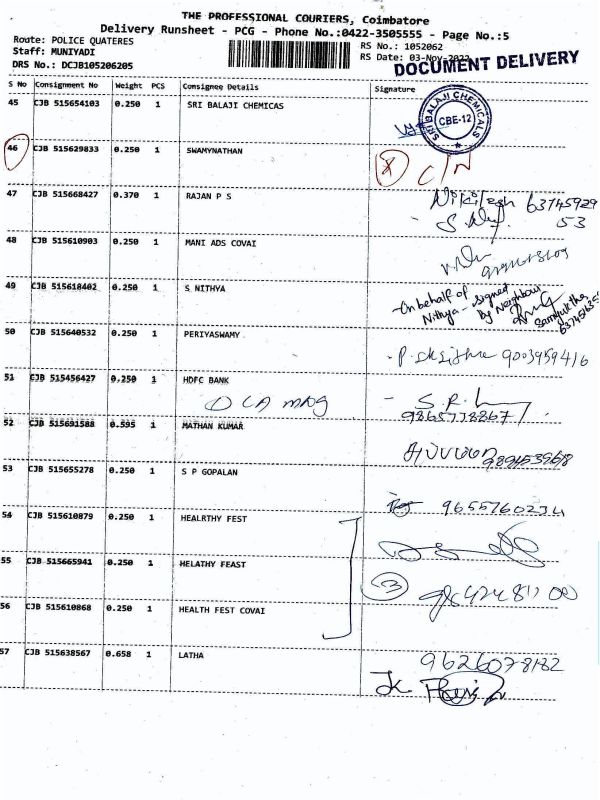 THE PROFESSIONAL COURIERS, Coimbatore
Delivery Runsheet - PCG - Phone No.:0422-3505555 - Page No.:5
Route: POLICE QUATERES
RS No.: 1052062
Staff: MUNIYADI
RS Date: 03-Nov-2023
DRS No.: DCJB105206205
DOCUMENT DELIVERY
S No Consignment No Weight PCS Consignee Details Signature
45 CJB 515654103 0.250 1 SRI BALAJI CHEMICAS
SRI BALAJI CHEMICALS CBE-12
46 CJB 515629833 0.250 1 SWAMYNATHAN
47 CJB 515668427 0.370 1 RAJAN P S
63745929
53
48 CJB 515610903 0.250 1 MANI ADS COVAI
49 CJB 515618402 0.250 1 S NITHYA
-On behalf of
Nithya - signed
By Neighbour
50 CJB 515640532 0.250 1 PERIYASWAMY
9003959416
51 CJB 515456427 0.250 1 HDFC BANK
S.R.
52 CJB 515691588 0.595 1 MATHAN KUMAR
53 CJB 515655278 0.250 1 S P GOPALAN
9655760234
54 CJB 515610879 0.250 1 HEALRTHY FEST
55 CJB 515665941 0.250 1 HELATHY FEAST
3
56 CJB 515610868 0.250 1 HEALTH FEST COVAI
57 CJB 515638567 0.658 1 LATHA
9626078182